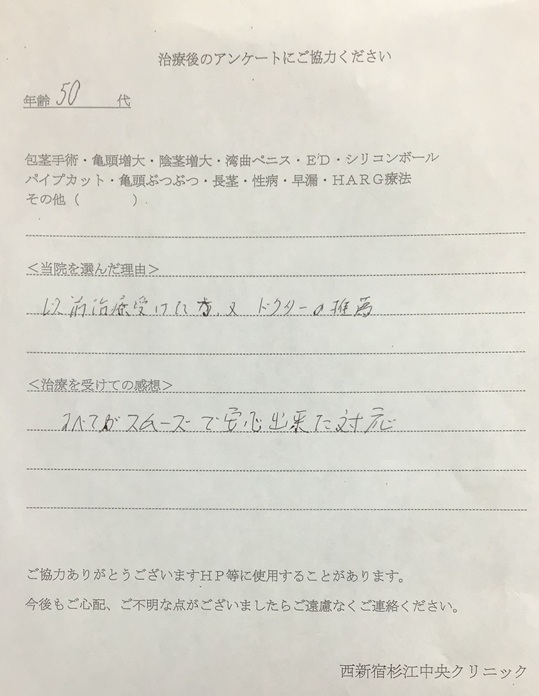 治療後のアンケートにご協力ください
年齢 50 代
包茎手術・亀頭増大・陰茎増大・湾曲ペニス・ED・シリコンボール
パイプカット・亀頭ぶつぶつ・長茎・性病・早漏・HARG療法
その他（　　　）
＜当院を選んだ理由＞
以前治療受けた 又 ドクターの推薦
＜治療を受けての感想＞
すべてがスムーズで安心出来た対応
ご協力ありがとうございますHP等に使用することがあります。
今後もご心配、ご不明な点がございましたらご遠慮なくご連絡ください。
西新宿杉江中央クリニック